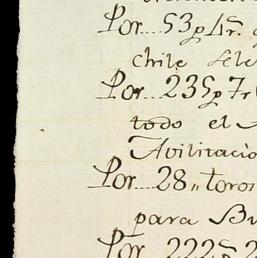 Por....53p 4rs.
chile
Por....235p 7r
todo el
Avilitacio
Por....28,, toros
para Bu
Por....222p 2